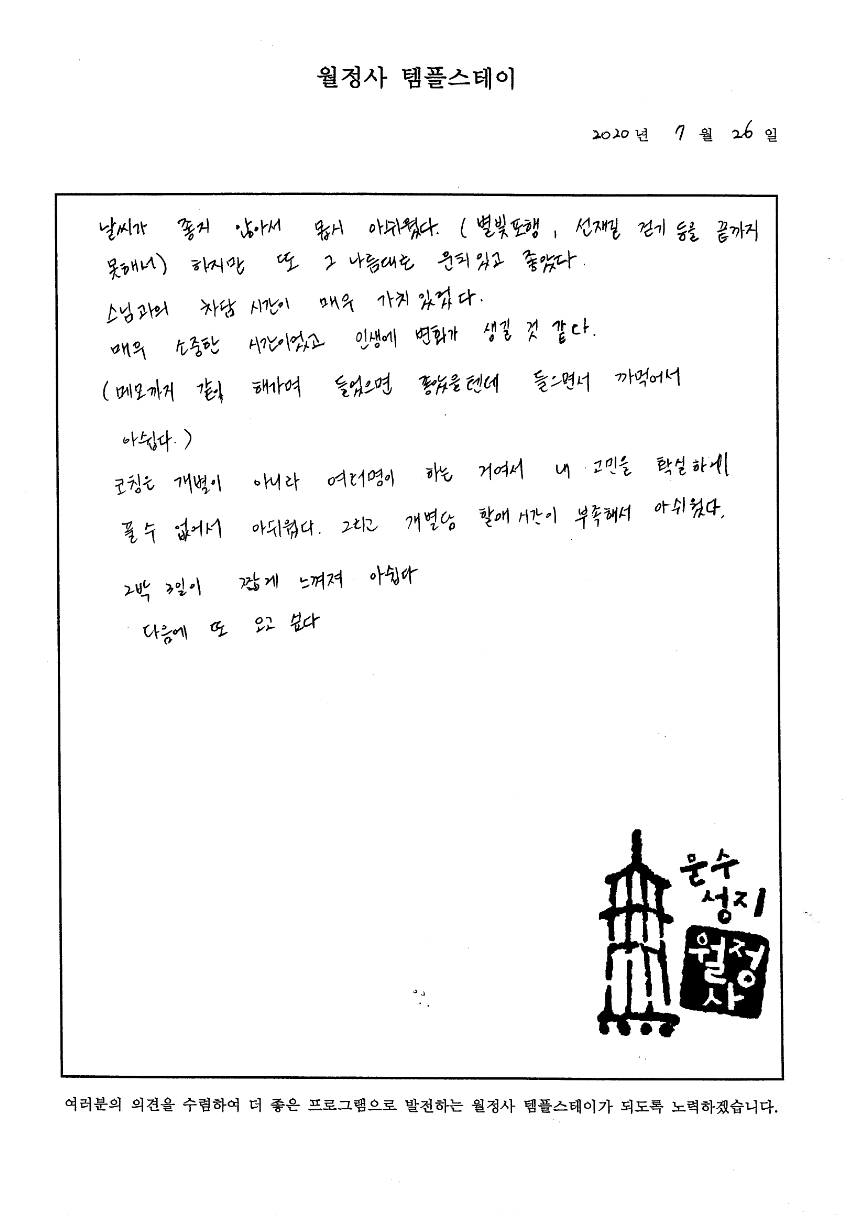 월정사 템플스테이
2020년 7월 26일
날씨가 좋지 않아서 몹시 아쉬웠다. (별빛포행, 선재길 걷기 등을 끝까지
못해서) 하지만 또 그 나름대로 운치있고 좋았다.
스님과의 차담 시간이 매우 가치 있었다.
매우 소중한 시간이었고 인생에 변화가 생길 것 같다.
(메모까지 같이 해가며 들었으면 좋았을텐데 들으면서 까먹어서
아쉽다.)
코칭은 개별이 아니라 여러명이 하는 거여서 내 고민을 확실하게
풀 수 없어서 아쉬웠다. 그리고 개별상담 할애 시간이 부족해서 아쉬웠다.
2박 3일이 짧게 느껴져 아쉽다
다음에 또 오고 싶다
문수
성지
월정
사
여러분의 의견을 수렴하여 더 좋은 프로그램으로 발전하는 월정사 템플스테이가 되도록 노력하겠습니다.